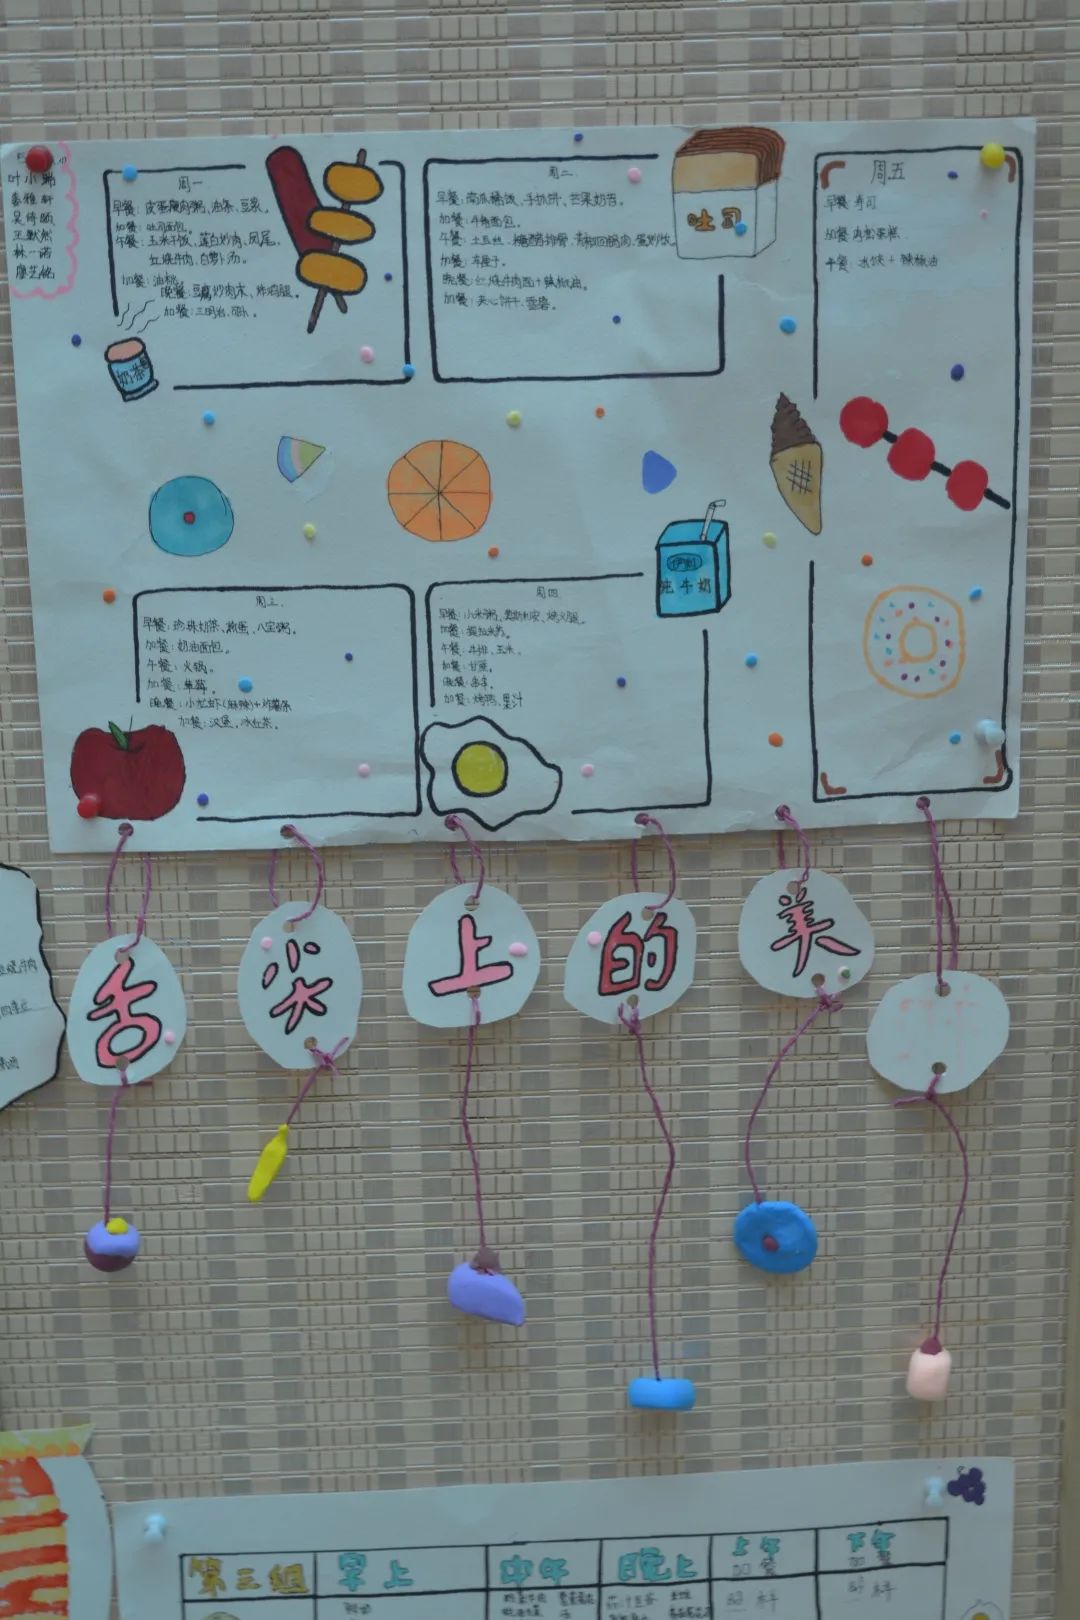 叶小
吴倚颐
王默然
林一诺
廖艺铭
周一
早餐：皮蛋瘦肉粥、油条、豆浆。
加餐：吐司面包。
午餐：玉米干饭、莲白炒肉、凤尾、
红烧牛肉、白萝卜汤。
加餐：油桃。
晚餐：豆腐炒肉末、炸鸡腿。
加餐：三明治、
奶茶
周二
早餐：南瓜稀饭、手抓饼、芒果奶昔。
加餐：牛角面包。
午餐：土豆丝、糖醋排骨、青椒回锅肉、蛋炒饭。
加餐：车厘子。
晚餐：红烧牛肉面+辣椒油。
加餐：夹心饼干、香蕉。
吐司
周五
早餐 寿司
加餐 肉松蛋糕
午餐：水饺 + 辣椒油
周三
早餐：珍珠奶茶、煎蛋、八宝粥。
加餐：奶油面包。
午餐：火锅。
加餐：草莓。
晚餐：小龙虾（麻辣）+炸薯条
加餐：汉堡，冰红茶。
周四
早餐：小米粥、奥斯利安、烤火腿。
加餐：提拉米苏。
午餐：牛排、玉米。
加餐：甘蔗。
晚餐：串串。
加餐：烤鸭、果汁
伊利
纯牛奶
舌尖上的美
第三组 早上 中午 晚上 上午加餐 下午加餐